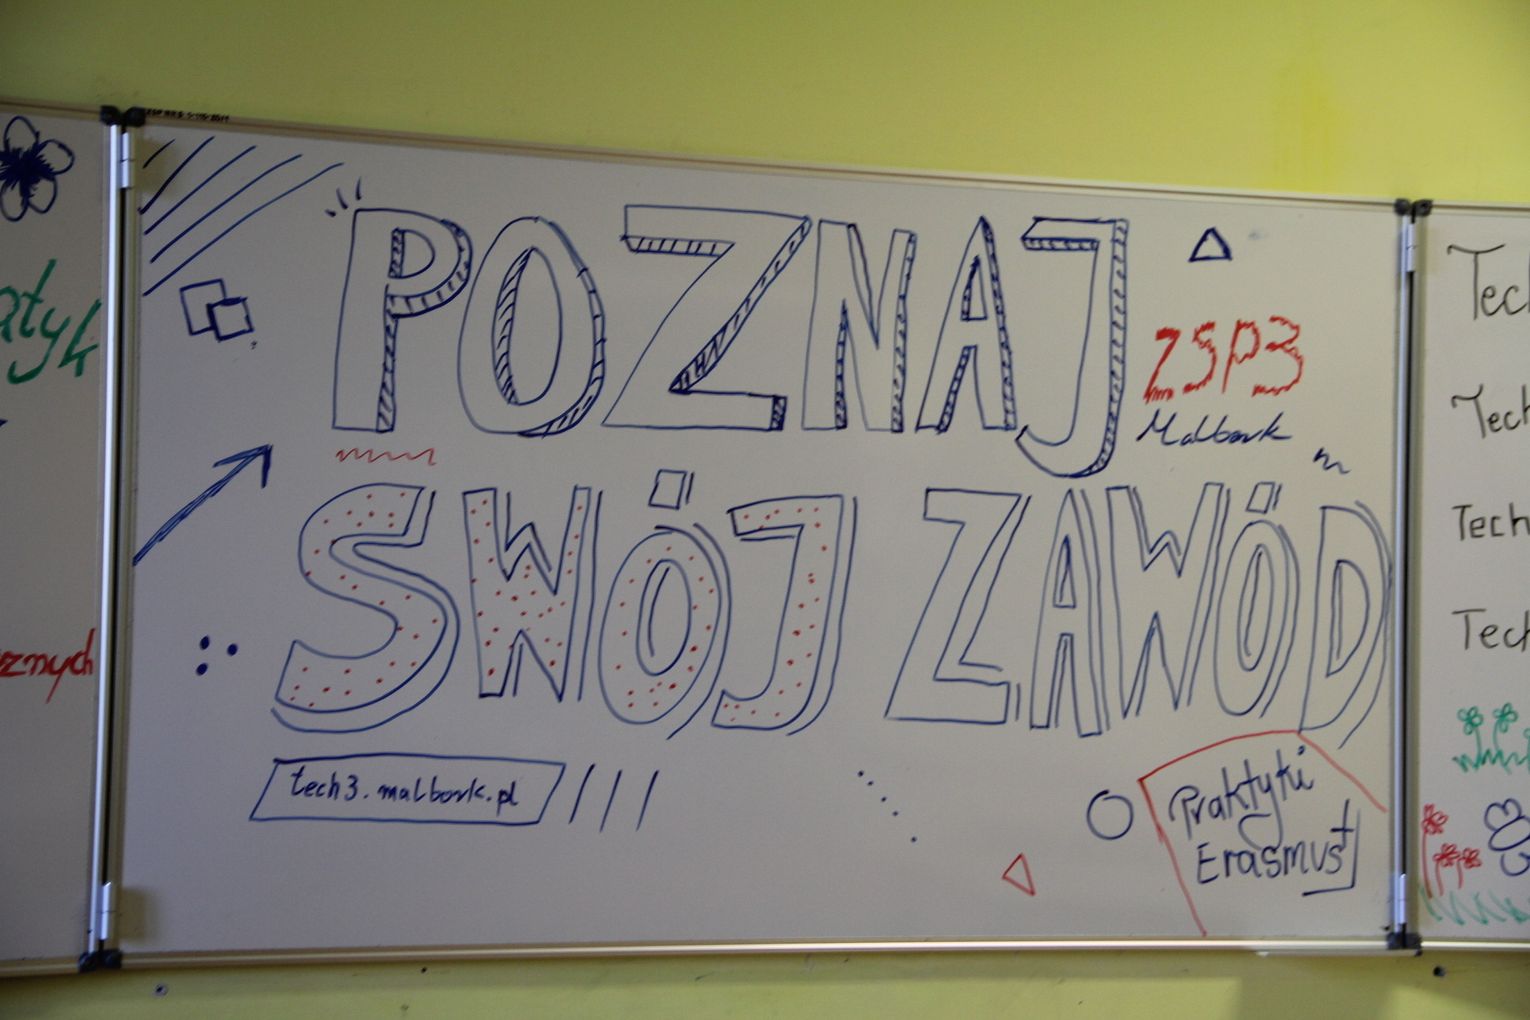 POZNAJ
ZSP3
Malbork
SWÓJ ZAWÓD
tech3.malbork.pl
Praktyki
Erasmus+
atyk
znych
Tech
Tech
Tech
Tech